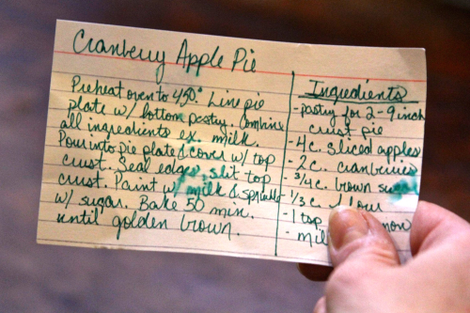 Cranberry Apple Pie
Preheat oven to 450.° Line pie
plate w/ bottom pastry. Combine
all ingredients ex. milk.
Pour into pie plate & cover w/ top
crust. Seal edges, slit top
crust. Paint w/ milk & sprinkle
w/ sugar. Bake 50 min.
until golden brown.
Ingredients
- pastry for 2-9 inch
crust pie
- 4 c. sliced apples
- 2 c. cranberries
- 3/4 c. brown
1/3 c. flour
- 1 tsp
- mil